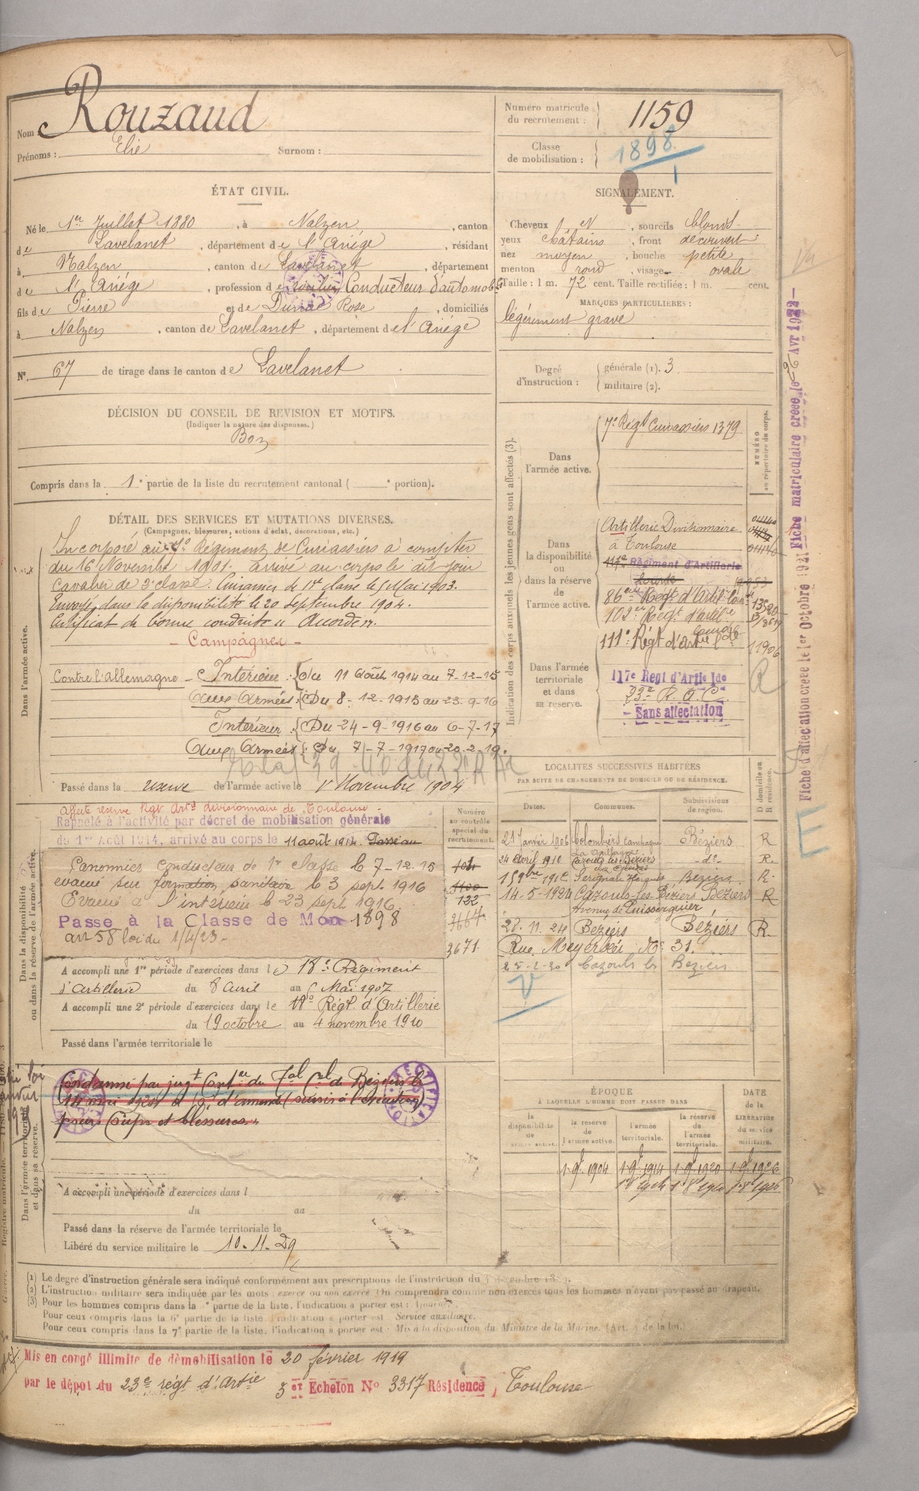 Nom Rouzaud
Prénoms : Elie Surnom :
Numéro matricule du recrutement : 1159
Classe de mobilisation : 1898
ÉTAT CIVIL.
Né le 1er Juillet 1880, à Nalzen, canton
de Lavelanet, département de l'Ariége, résidant
à Nalzen, canton de Lavelanet, département
de l'Ariége, profession de Conducteur d'automob
fils de Pierre et de Rose, domiciliés
à Nalzen, canton de Lavelanet, département de l'Ariége
N° 67 de tirage dans le canton de Lavelanet
SIGNALEMENT.
Cheveux, sourcils blond
yeux châtains, front découvert
nez moyen, bouche petite
menton rond, visage ovale
Taille : 1 m. 72 cent. Taille rectifiée : 1 m. cent.
MARQUES PARTICULIÈRES :
légèrement gravé
Degré d'instruction : générale (1). 3
militaire (2).
DÉCISION DU CONSEIL DE REVISION ET MOTIFS.
(Indiquer la nature des dispenses.)
Bon
Compris dans la 1e partie de la liste du recrutement cantonal ( e portion).
DÉTAIL DES SERVICES ET MUTATIONS DIVERSES.
(Campagnes, blessures, actions d'éclat, décorations, etc.)
Dans l'armée active.
Incorporé au régiment de Cuirassiers à compter
du 16 Novembre 1901. arrivé au corps le dit jour
Cavalier de 2e classe. Cuirassier de 1re classe le 5 Mai 1903.
Envoyé dans la disponibilité le 20 Septembre 1904.
Certificat de bonne conduite « Accordé ».
- Campagnes -
Contre l'Allemagne - Intérieur : du 11 août 1914 au 7-12-15
aux Armées : Du 8-12-1915 au 23-9-16
Intérieur : Du 24-9-1916 au 6-7-17
aux Armées : Du 7-7-1917 au 20-2-19.
Passé dans la réserve de l'armée active le 1er Novembre 1904
Indication des corps auxquels les jeunes gens sont affectés (3).
NUMÉRO au répertoire du corps.
Dans l'armée active.
7e Régt Cuirassiers 1379
Dans la disponibilité ou dans la réserve de l'armée active.
Artillerie Divisionnaire
à Toulouse
Régiment d'Artillerie
lourde
86e Régt d'Artil. 1320
103e Régt d'artil.
111e Régt d'Art lourde 11906
Dans l'armée territoriale et dans sa réserve.
117e Régt d'Artie lde
- Sans affectation
R
Dans la disponibilité ou dans la réserve de l'armée active.
Affecté réserve Régt Artie divisionnaire de Toulouse
Rappelé à l'activité par décret de mobilisation générale
du 1er Août 1914, arrivé au corps le 11 août 1914.
Canonnier conducteur de 1re classe le 7-12-15
évacué sur formation sanitaire le 3 sept. 1916
Evacué à l'intérieur le 23 sept 1916
Passe à la Classe de Mob 1898
art 58 loi du 1/4/23
Numéro au contrôle spécial du recrutement.
132
3671
A accompli une 1re période d'exercices dans le 18e Régiment
d'Artillerie du 8 Avril au 5 Mai 1907
A accompli une 2e période d'exercices dans le 18e Régt d'Artillerie
du 19 octobre au 4 novembre 1910
Passé dans l'armée territoriale le
LOCALITÉS SUCCESSIVES HABITÉES
PAR SUITE DE CHANGEMENTS DE DOMICILE OU DE RÉSIDENCE.
Dates. Communes. Subdivisions de région. D domicile ou R résidence.
21 Janvier 1906 Colombiers Béziers R
24 Avril 1911 Cazouls les Béziers -do- R.
1912 Sérignan Béziers R.
14-5-1924 Cazouls-les-Béziers Béziers R
avenue de Puisserguier
28.11.24 Béziers Béziers R.
Rue Meyerbeer No 31.
Cazouls les Béziers
Dans l'armée territoriale et dans sa réserve.
Condamné par jugt Contre du Tal Cel de Béziers le
14 mai à d'amende (sursis à l'exécution)
pour Coups et blessures.
RECTIFICATION
A accompli une période d'exercices dans l
du au
Passé dans la réserve de l'armée territoriale le
Libéré du service militaire le 10.11.29
ÉPOQUE
À LAQUELLE L'HOMME DOIT PASSER DANS
la disponibilité de l'armée active. la réserve de l'armée active. l'armée territoriale. la réserve de l'armée territoriale.
DATE de la LIBÉRATION du service militaire.
1 9bre 1904 1 9bre 1914 1 9bre 1920 1 9bre 1926
(1) Le degré d'instruction générale sera indiqué conformément aux prescriptions de l'instruction du
(2) L'instruction militaire sera indiquée par les mots : exercé ou non exercé. On comprendra comme non exercés tous les hommes n'ayant pas passé au drapeau.
(3) Pour les hommes compris dans la e partie de la liste, l'indication à porter est :
Pour ceux compris dans la 6e partie de la liste, l'indication à porter est Service auxiliaire.
Pour ceux compris dans la 7e partie de la liste, l'indication à porter est : Mis à la disposition du Ministre de la Marine.
Mis en congé illimité de démobilisation le 20 février 1919
par le dépôt du 23e régt d'Artie 3e Echelon N° 3317 Résidence, Toulouse
Fiche matriculaire créée le 26 Avr 1922
Fiche d'affectation créée le 1er Octobre 1921